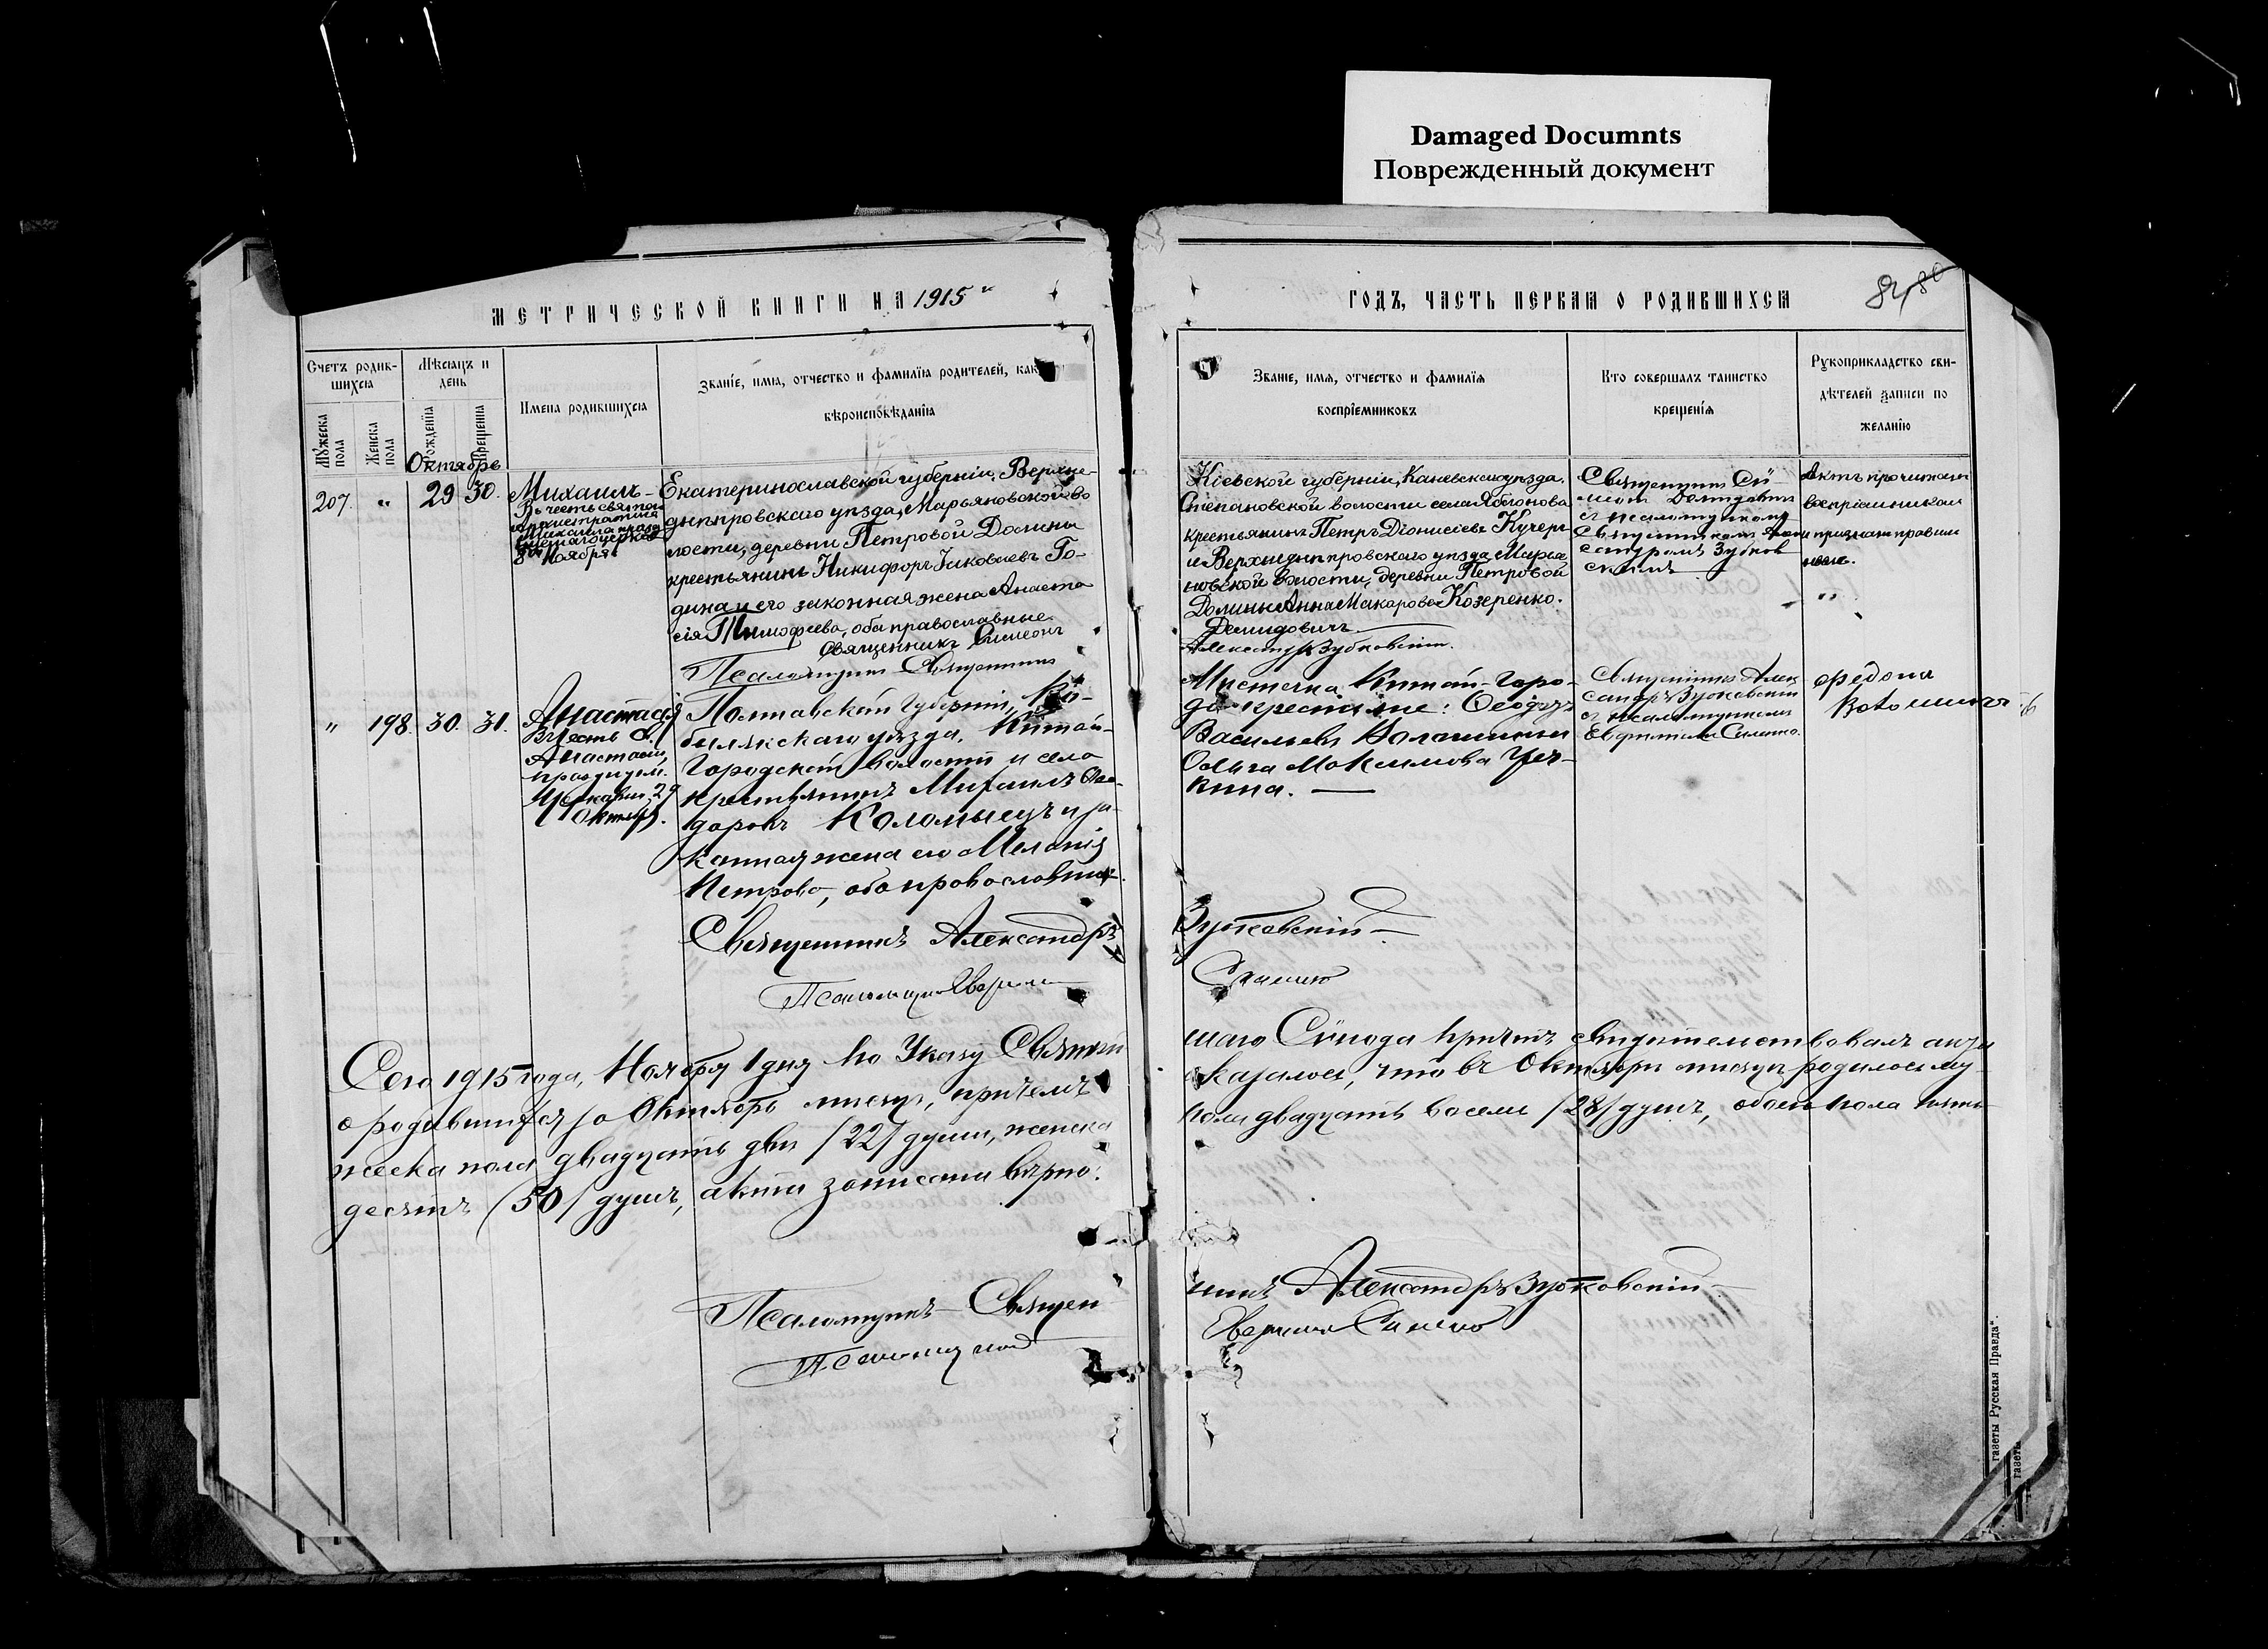 Damaged Documnts
Поврежденный документ
МЕТРИЧЕСКОЙ КНИГИ НА 1915
ГОДЪ, ЧАСТЬ ПЕРВАЯ О РОДИВШИХСЯ
84 80
Счетъ родив-
шихся
Мужеска пола
Женска пола
Мѣсяцъ и
день
Рожденїя
Крещенїя
Имена родившихся
Званїе, имя, отчество и фамилїя родителей, как
вѣроисповѣданїя
Званїе, имя, отчество и фамилїя
воспрїемниковъ
Кто совершалъ таинство
крещенїя
Рукоприкладство сви-
дѣтелей записи по
желанїю
Октябрь
207. " 29 30.
Михаилъ-
Въ честь святого
архистратига
Михаила празд
8го Ноября
Екатеринославской губерніи, Верхне-
днѣпровскаго уѣзда, Марьяновской во
лости, деревни Петровой Долины
крестьянинъ Никифоръ Іаковлевъ Го-
дина и его законная жена Анаста
сія Тимофеева, оба православные
Священникъ Симеонъ
Псаломщикъ Священникъ
Кіевской губерніи, Каневскаго уѣзда,
Степановской волости села Яблонова
крестьянинъ Петръ Діонисіевъ Кучеръ
и Верхнеднѣпровскаго уѣзда, Марья
новской волости, деревни Петровой
Долины Анна Макарова Козеренко.
Демидовичъ
Александръ Зубковскій.
Священникъ Сѵ-
меонъ Демидовичъ
съ псаломщикомъ
Священникомъ Алек
сандромъ Зубков
скимъ
Актъ прочитанъ
воспріемникам
и признанъ правиль
нымъ.
"
" 198. 30. 31.
Анастасія
въ честь св.
Анастасіи,
празднуем.
Церковью 29
Октября.
Полтавской Губерніи, Ко-
билякскаго уѣзда, Китай-
Городской волости и села
крестьянинъ Михаилъ Ѳео-
доровъ Коломыецъ и за-
конная жена его Меланія
Петрова, оба православные.
Священникъ Александръ
Псаломщикъ
Мистечка Китай-Горо-
да крестьяне: Ѳеодоръ
Васильевъ Волошинъ и
Ольга Максимова
кина.
Зубковскій
Силенко
Священникъ Алек
сандръ Зубковскій
съ псаломщикомъ
Силенко.
Федоръ
Волошинъ
Сего 1915 года, Ноября 1 дня по Указу Святѣй
шаго Сѵнода причтъ свидѣтельствовалъ акты
о родившихся за Октябрь мѣсяцъ, причемъ
оказалось, что въ Октябрѣ мѣсяцѣ родилось му-
жеска пола двадцать двѣ /22/ души, женска
пола двадцать восемь /28/ душъ, обоего пола пять-
десятъ (50/ душъ, акты записаны вѣрно.
Псаломщикъ – Священ
никъ Александръ Зубковскій.
Псаломщикъ
Силенко
газеты „Русская Правда“.
газеты